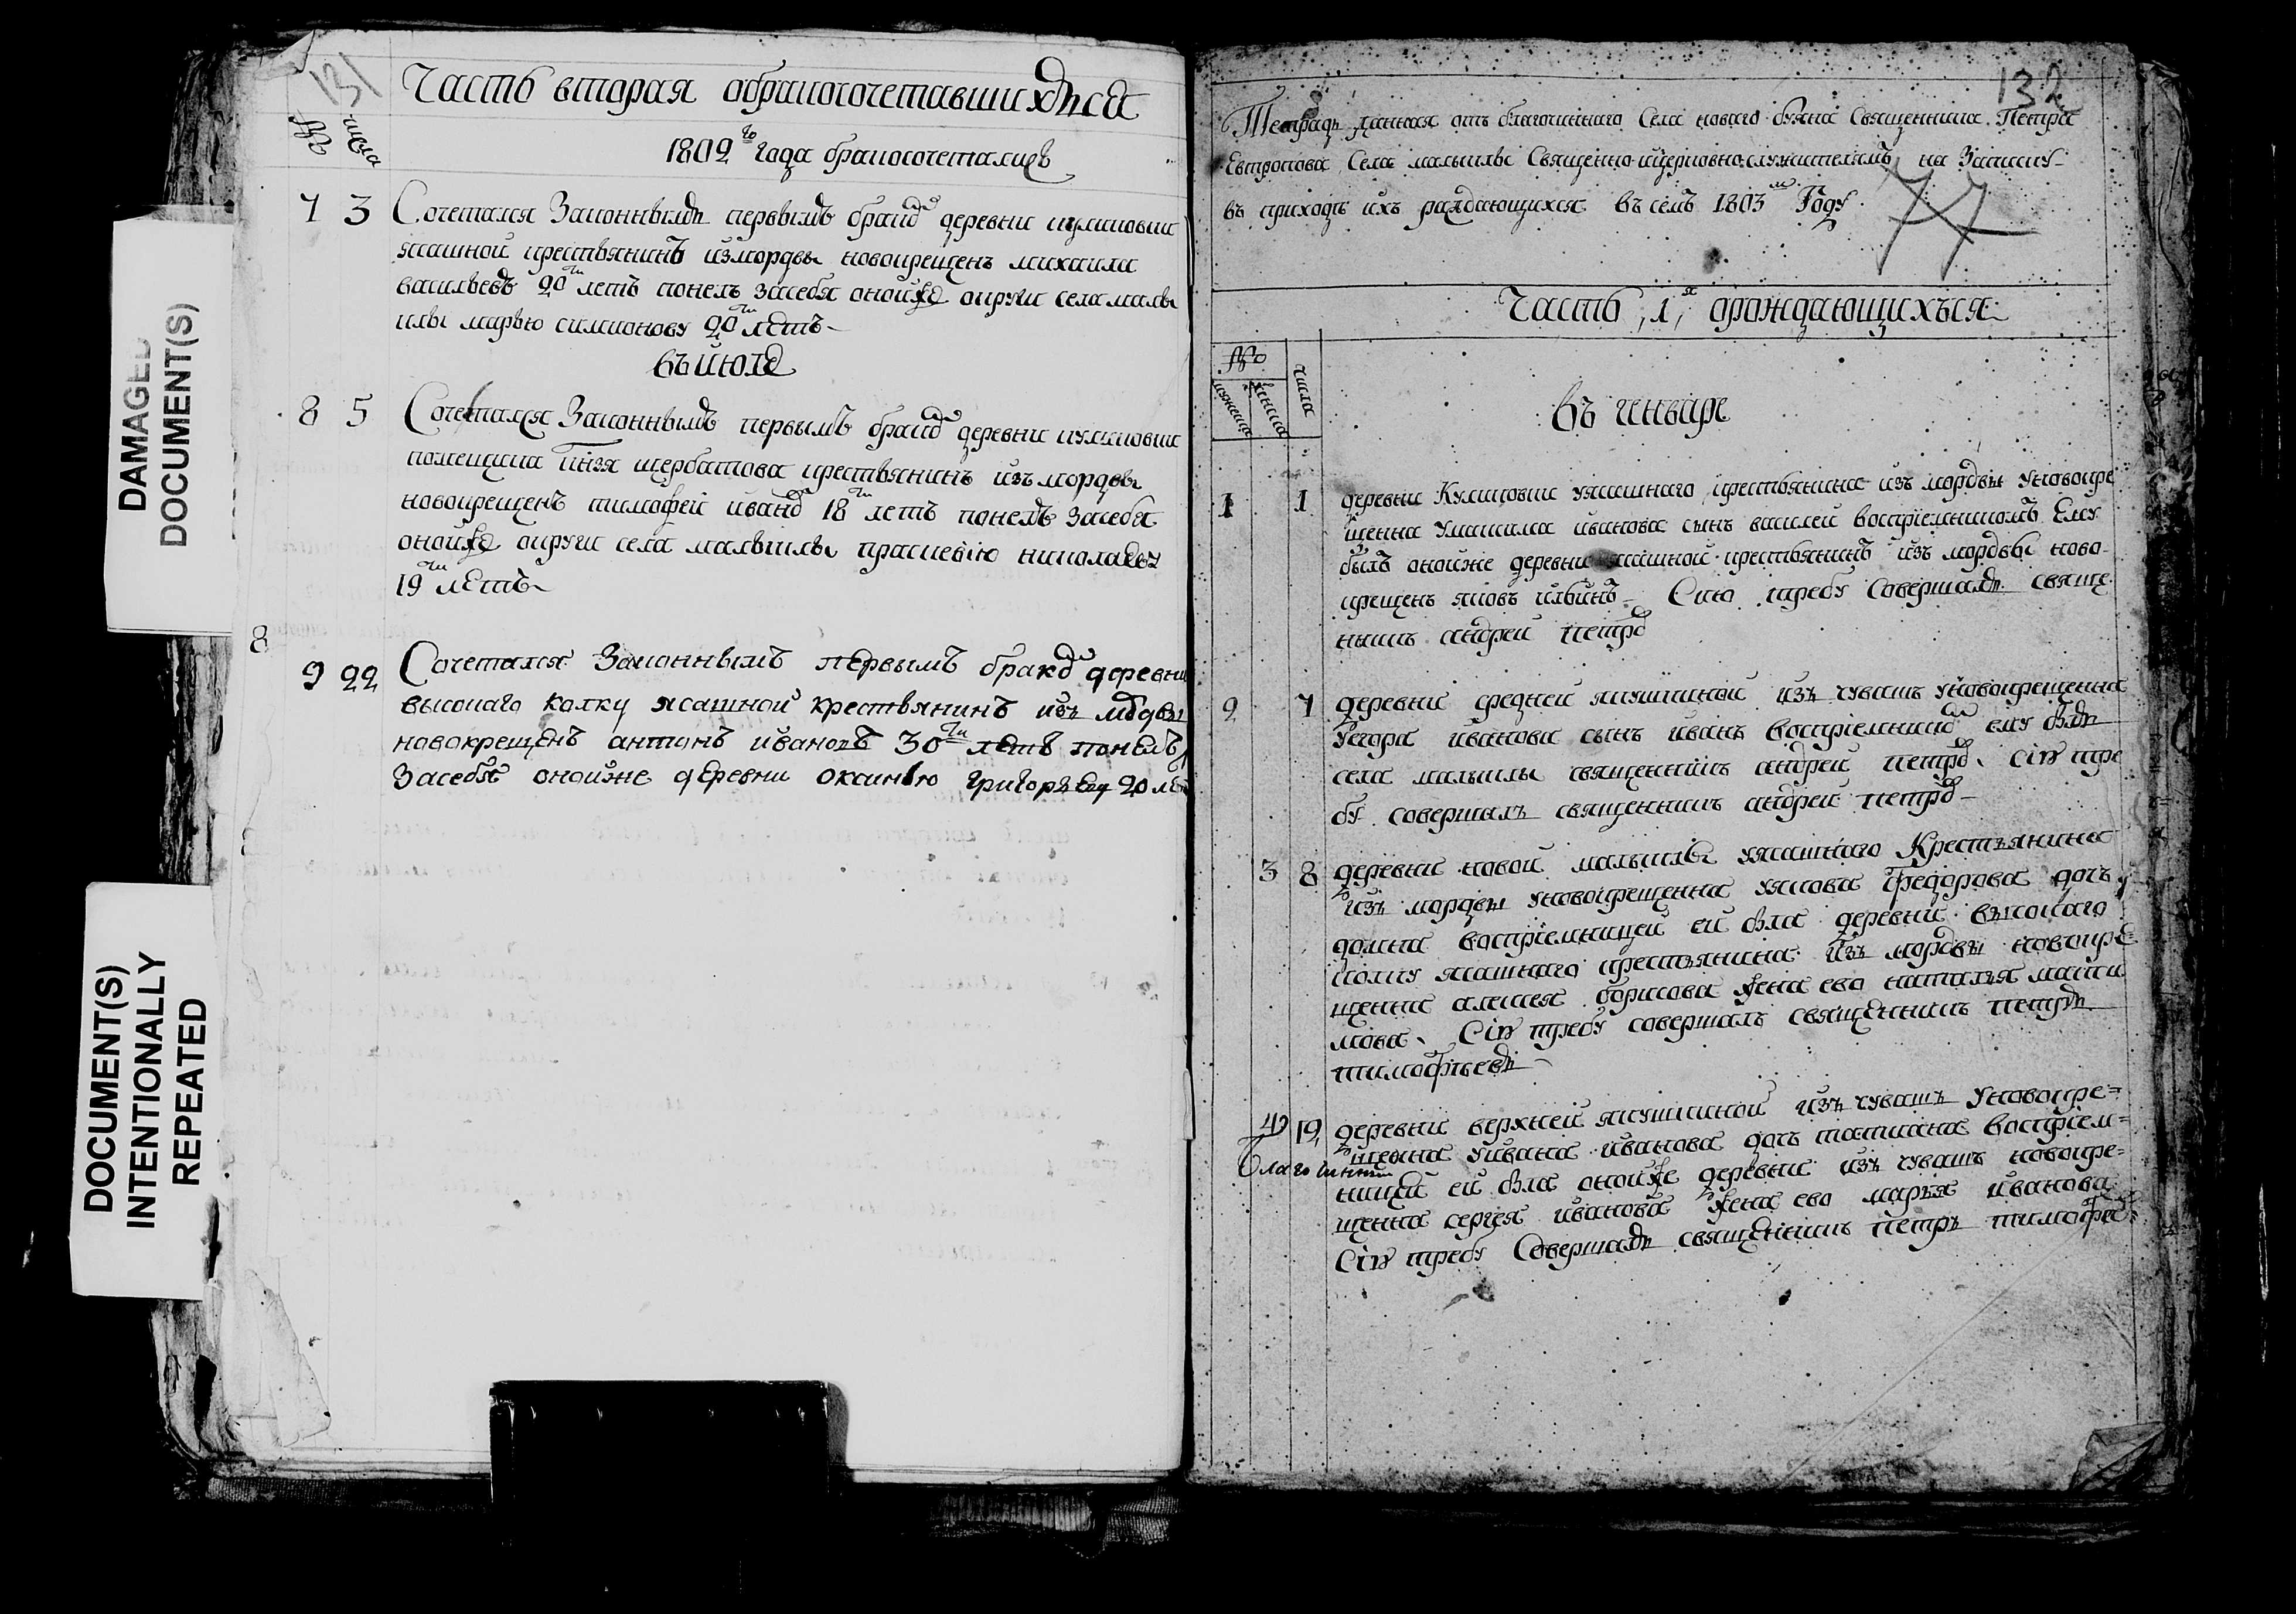 DAMAGED
DOCUMENT(S)
DOCUMENT(S)
INTENTIONALLY
REPEATED
131
Часть вторая обракосочетавшихъся
№ числа
1802го года бракосочетались
7 3 Сочетался Законнымъ первымъ бракомъ деревни куликовки
ясашной крестьянинъ изморды новокрещенъ михаила
васильевъ 20ти летъ понелъ засебя онойже округи села малы
клы марью симионову 20ти летъ
въ июле
8 5 Сочетался Законнымъ первымъ бракомъ деревни куликовки
помещика Князя щербатова крестьянинъ изъ мордвы
новокрещенъ тимофей иванов 18ти летъ понелъ засебя
онойже округи села малыклы прасковию николаеву
19ти летъ
8
9 22 Сочетался Законнымъ первымъ бракомъ деревни
высокаго колку ясашной крестьянинъ изъ мордвы
новокрещенъ антонъ ивановъ 30ти летъ понелъ
Засебя онойже деревни оксинью григорьеву 20 ле
132
Тетрадь данная отъ благочиннаго Села новаго буяна Священника Петра
Евтропова Села малыклы Священно ицерковно служителямъ на Записку
въ приходе ихъ раждающихся въ семъ 1803м Году
77
Часть 1я орождающихъся
№ числа
мужеска женска
въ генваре
1 1 деревни Куликовки уясашнаго крестьянина изъ мордвы уновокре
щенна иванова сынъ василей воспріемникомъ Ему
былъ онойже деревни ясашной крестьянинъ изъ мордвы ново
крещенъ яковъ ильинъ Сию требу Совершалъ свяще
нникъ андрей петров
2 7 деревни средней якушкиной изъ чувашъ уновокрещенна
Уегора иванова сынъ иванъ воспріемникомъ ему былъ
села малыклы священникъ андрей петров сію тре
бу совершалъ священникъ андрей петров
3 8 деревни новой малыклы уясашнаго Крестьянина
изъ мордвы уновокрещенна уякова федорова дочь
домна воспріемницей ей была деревни высокаго
колку ясашнаго крестьянина изъ мордвы новокре
щенна алексея борисова жена ево наталья макси
мова Сію требу совершалъ священникъ петръ
тимофъевъ
4 19 деревни верхней якушкиной изъ чувашъ Уновокре=
щенна уивана иванова дочь татиана воспріем=
Благочинный
ницей ей была онойже деревни изъ чувашъ новокре=
щенна сергея иванова жена ево марья иванова
Сію требу Совершалъ священникъ петръ тимофее